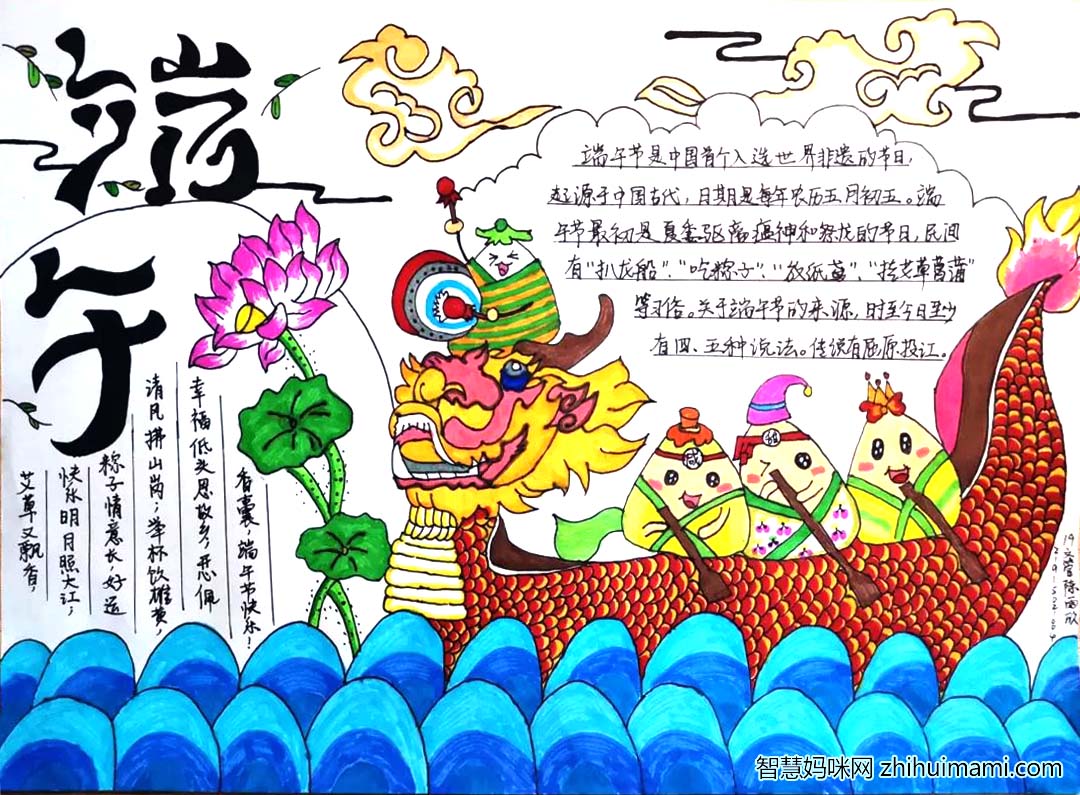 端
午
端午节是中国首个入选世界非遗的节日,
起源于中国古代,日期是每年农历五月初五。端
午节最初是夏季驱离瘟神和祭龙的节日,民间
有“扒龙船”、“吃粽子”、“放纸鸢”、“挂艾草菖蒲”
等习俗。关于端午节的来源,时至今日至少
有四、五种说法。传说有屈原投江。
艾草又飘香,
快乐明月照大江;
粽子情意长,好运
清风拂山岗;举杯饮雄黄,
幸福低头思故乡;开心佩
香囊,端午节快乐!
咸
甜
智慧妈咪网 zhihuimami.com